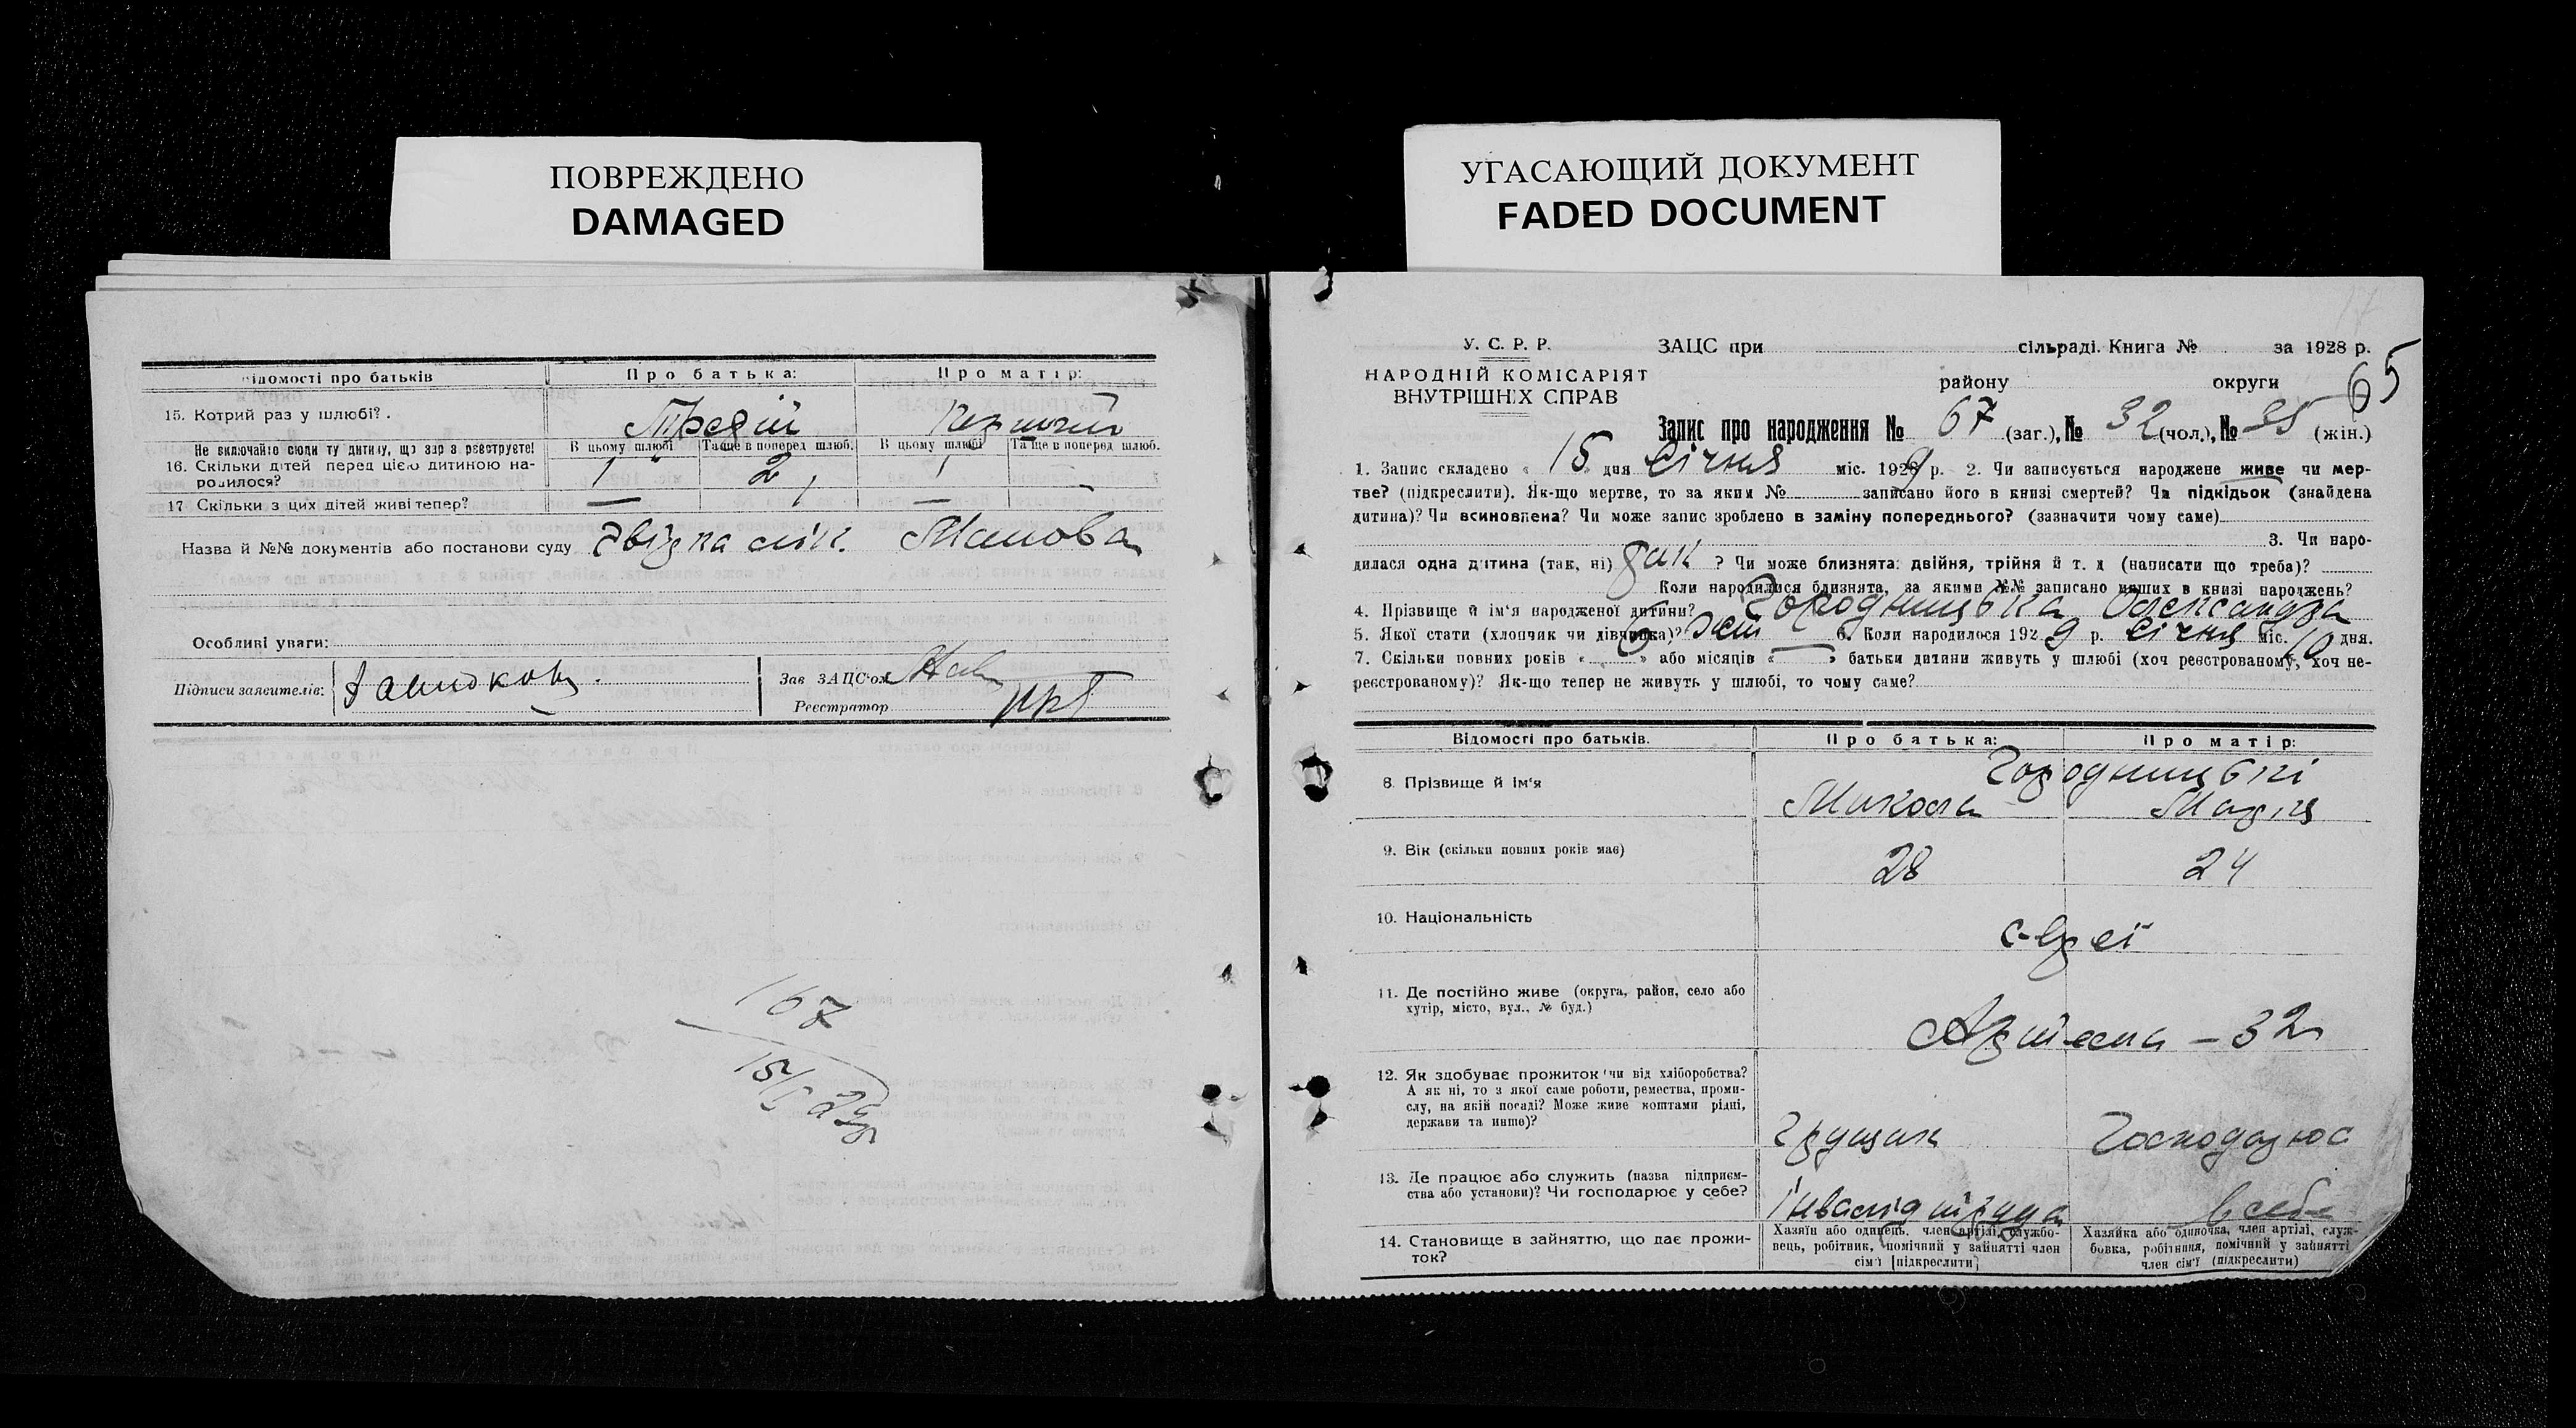 ПОВРЕЖДЕНО
DAMAGED
УГАСАЮЩИЙ ДОКУМЕНТ
FADED DOCUMENT
ідомості про батьків
Про батька:
Про матір:
15. Котрий раз у шлюбі?.
Третій
Перший
Не включайте сюди ту дитину, що зар з реєструєте!
В цьому шлюбі
Та ще в поперед шлюб.
В цьому шлюбі
Та ще в поперед шлюб.
16. Скільки дітей перед цією дитиною народилося?
1
2
1
–
17 Скільки з цих дітей живі тепер?
—
1
—
Назва й №№ документів або постанови суду
Особливі уваги:
Підписи заявителів:
Зав ЗАЦС'ом
Реєстратор
167
15/I 29р
У. С. Р. Р.
НАРОДНІЙ КОМІСАРІЯТ
ВНУТРІШНІХ СПРАВ
ЗАЦС при сільраді. Книга № за 1928 р.
району округи
65
Запис про народження № 67 (заг.), № 32 (чол.), № 35 (жін.)
1. Запис складено « 15 » дня Січня міс. 1929 р. 2. Чи записується народжене живе чи мер-
тве? (підкреслити). Як-що мертве, то за яким № записано його в книзі смертей? Чи підкідьок (знайдена
дитина)? Чи всиновлена? Чи може запис зроблено в заміну попереднього? (зазначити чому саме)
3. Чи наро-
дилася одна дитина (так, ні) так ? Чи може близнята: двійня, трійня й т. д (написати що треба)?
Коли народилися близнята, за якими №№ записано инших в книзі народжень?
4. Прізвище й ім'я народженої дитини? Городницька Олександра
5. Якої стати (хлопчик чи дівчинка)? жін 6. Коли народилося 1929 р. Січня міс. 10 дня.
7. Скільки повних років « 6 » або місяців « — » батьки дитини живуть у шлюбі (хоч реєстрованому, хоч не-
реєстрованому)? Як-що тепер не живуть у шлюбі, то чому саме?
Відомості про батьків.
Про батька:
Про матір:
8. Прізвище й ім'я
Городницькі
Микола
Марія
9. Вік (скільки повних років має)
28
24
10. Національність
євреї
11. Де постійно живе (округа, район, село або
хутір, місто, вул., № буд.)
Артема – 32
12. Як здобуває прожиток чи від хліборобства?
А як ні, то з якої саме роботи, ремества, проми-
слу, на якій посаді? Може живе коштами рідні,
держави та инше)?
Грущик
Господарює
13. Де працює або служить (назва підприєм-
ства або установи)? Чи господарює у себе?
Інвалід труда
в себе
14. Становище в зайняттю, що дає прожи-
ток?
Хазяїн або одинець, член артілі, службо-
вець, робітник, помічний у зайнятті член
сім'ї [підкреслити]
Хазяйка або одиночка, член артілі, служ-
бовка, робітниця, помічний у зайнятті
член сім'ї (підкреслити)